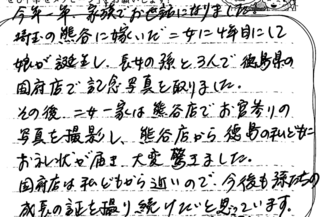 今年一年、家族でお世話になりました。
埼玉の熊谷に嫁いだ二女に4年目にして
娘が誕生し、長女の孫と、3人で徳島県の
国府店で記念写真を取りました。
その後二女一家は熊谷店でお宮参りの
写真を撮影し、熊谷店から徳島の私どもに
お礼状が届き、大変驚きました。
国府店は私どもから近いので、今後も孫たちの
成長の証を撮り続けたいと思っています。